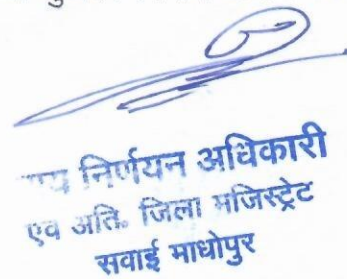 निर्णयन अधिकारी
एव अति. जिला मजिस्ट्रेट
सवाई माधोपुर